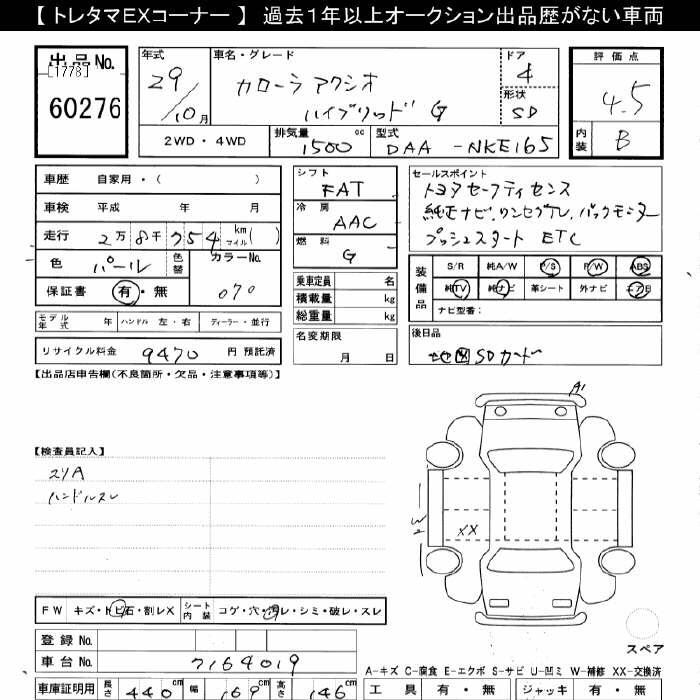 【 トレタマEXコーナー 】 過去1年以上オークション出品歴がない車両
出品No.
[1778]
60276
年式
29
10月
車名・グレード
カローラ アクシオ
ハイブリッド G
ドア
4
形状
SD
評価点
4.5
内装
B
2WD・4WD
排気量
1500 cc
型式
DAA - NKE165
車歴 自家用・( )
車検 平成 年 月
走行 2万 8千 754 km マイル ( )
色 パール 色替
カラーNo.
070
保証書 有・無
シフト
FAT
冷房
AAC
燃料
G
乗車定員 名
積載量 kg
総重量 kg
名変期限
月 日
セールスポイント
トヨタセーフティセンス
純正ナビ、ワンセグTV、バックモニター
プッシュスタート ETC
装備品
S/R 純A/W P/S P/W ABS
純TV 純ナビ 革シート 外ナビ エアB
ナビ型番:
後日品
地図SDカード
モデル年式 年 ハンドル 左・右 ディーラー・並行
リサイクル料金 9470 円 預託済
【出品店申告欄(不良箇所・欠品・注意事項等)】
【検査員記入】
スリA
ハンドルスレ
A1
W2
XX
FW キズ・トビ石・割レX
シート内装 コゲ・穴・汚レ・シミ・破レ・スレ
登録No.
車台No. 7164019
車庫証明用 長さ 440 cm 幅 169 cm 高さ 146 cm
スペア
A-キズ C-腐食 E-エクボ S-サビ U-凹ミ W-補修 XX-交換済
工具 有・無 ジャッキ 有・無